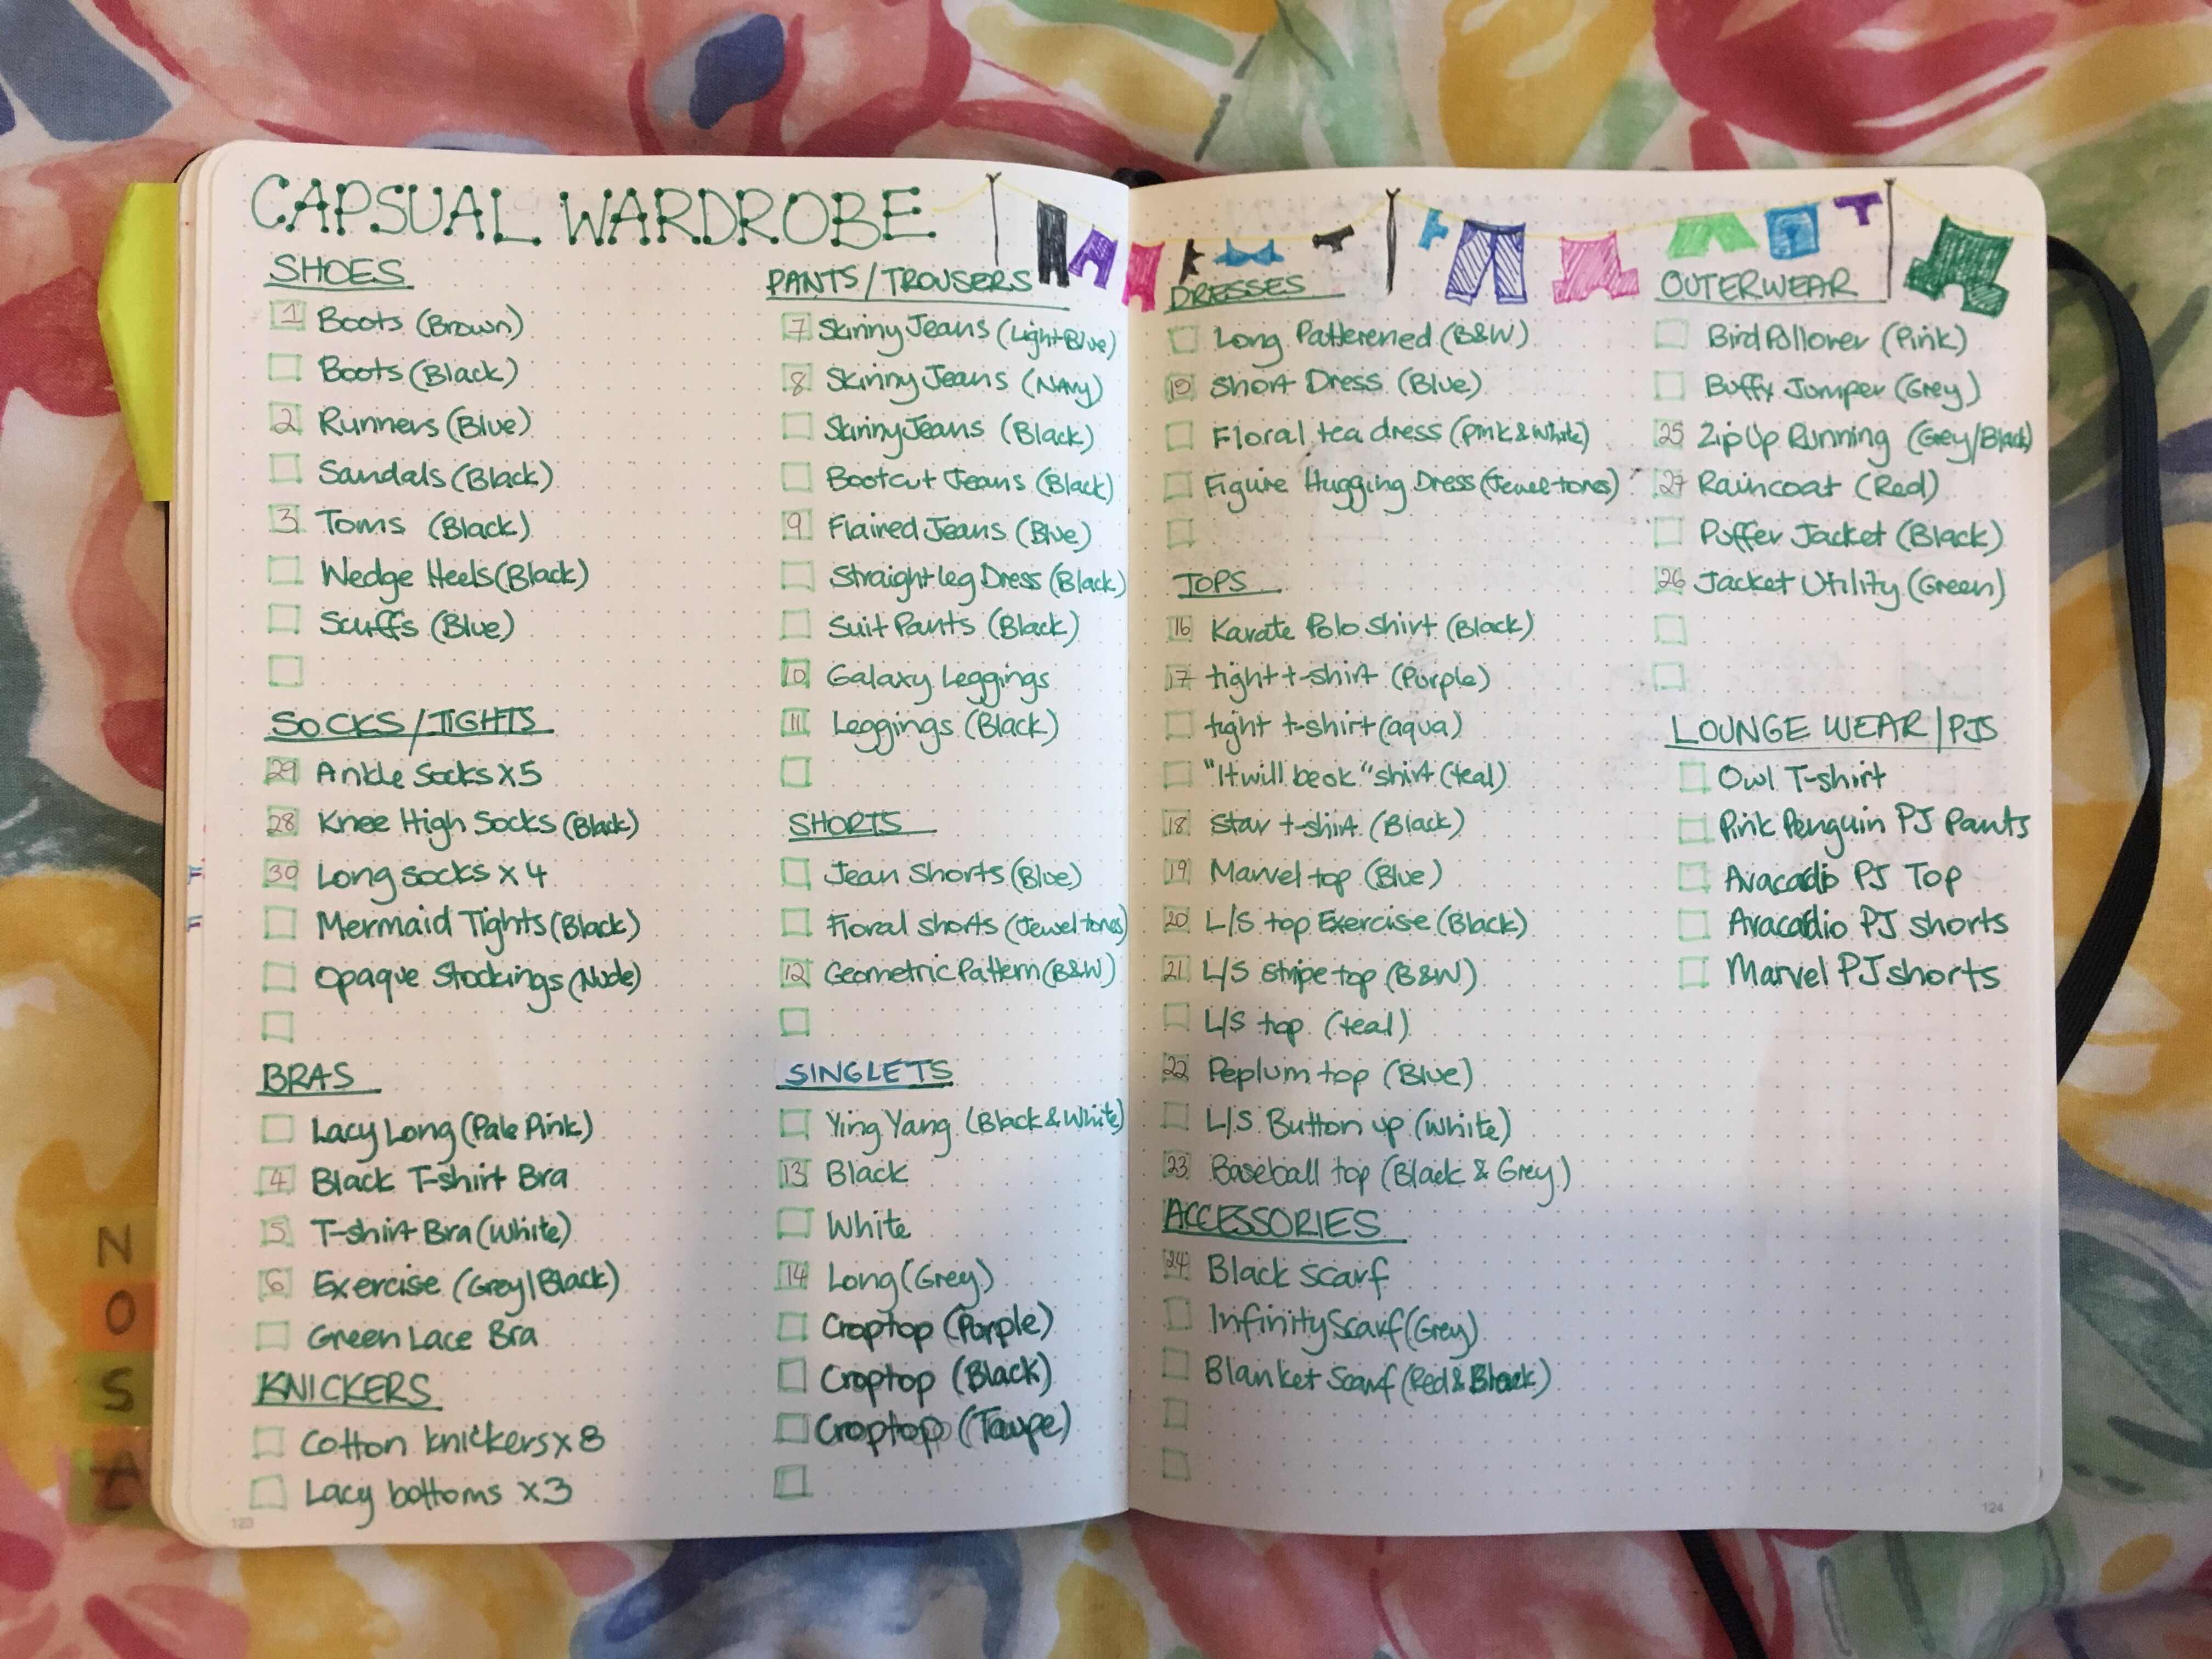 CAPSUAL WARDROBE
SHOES
1 Boots (Brown)
Boots (Black)
2 Runners (Blue)
Sandals (Black)
3 Toms (Black)
Wedge Heels (Black)
Scuffs (Blue)
SOCKS/TIGHTS
29 Ankle Socks x5
28 Knee High Socks (Black)
30 Long socks x 4
Mermaid Tights (Black)
Opaque Stockings (Nude)
BRAS
Lacy Long (Pale Pink)
4 Black T-shirt Bra
5 T-shirt Bra (White)
6 Exercise (Grey/Black)
Green Lace Bra
KNICKERS
Cotton knickers x 8
Lacy bottoms x3
123
PANTS/TROUSERS
7 Skinny Jeans (Light Blue)
8 Skinny Jeans (Navy)
Skinny Jeans (Black)
Bootcut Jeans (Black)
9 Flaired Jeans (Blue)
Straight leg Dress (Black)
Suit Pants (Black)
10 Galaxy Leggings
11 Leggings (Black)
SHORTS
Jean Shorts (Blue)
Floral shorts (Jewel tones)
12 Geometric Pattern (B&W)
SINGLETS
Ying Yang (Black & White)
13 Black
White
14 Long (Grey)
Croptop (Purple)
Croptop (Black)
Croptop (Taupe)
DRESSES
Long Patterened (B&W)
15 Short Dress (Blue)
Floral tea dress (pink & white)
Figure Hugging Dress (Jewel tones)
TOPS
16 Karate Polo shirt (Black)
17 tight t-shirt (Purple)
tight t-shirt (aqua)
"It will be ok" shirt (teal)
18 Star t-shirt (Black)
19 Marvel top (Blue)
20 L/S top Exercise (Black)
21 L/S stripe top (B&W)
L/S top (teal)
22 Peplum top (Blue)
L/S Button up (White)
23 Baseball top (Black & Grey)
ACCESSORIES
24 Black scarf
Infinity Scarf (Grey)
Blanket Scarf (Red & Black)
OUTERWEAR
Bird Pullover (Pink)
Buffy Jumper (Grey)
25 Zip Up Running (Grey/Black)
27 Raincoat (Red)
Puffer Jacket (Black)
26 Jacket Utility (Green)
LOUNGE WEAR/PJS
Owl T-shirt
Pink Penguin PJ Pants
Avacadio PJ Top
Avacadio PJ shorts
Marvel PJ shorts
124
N
O
S